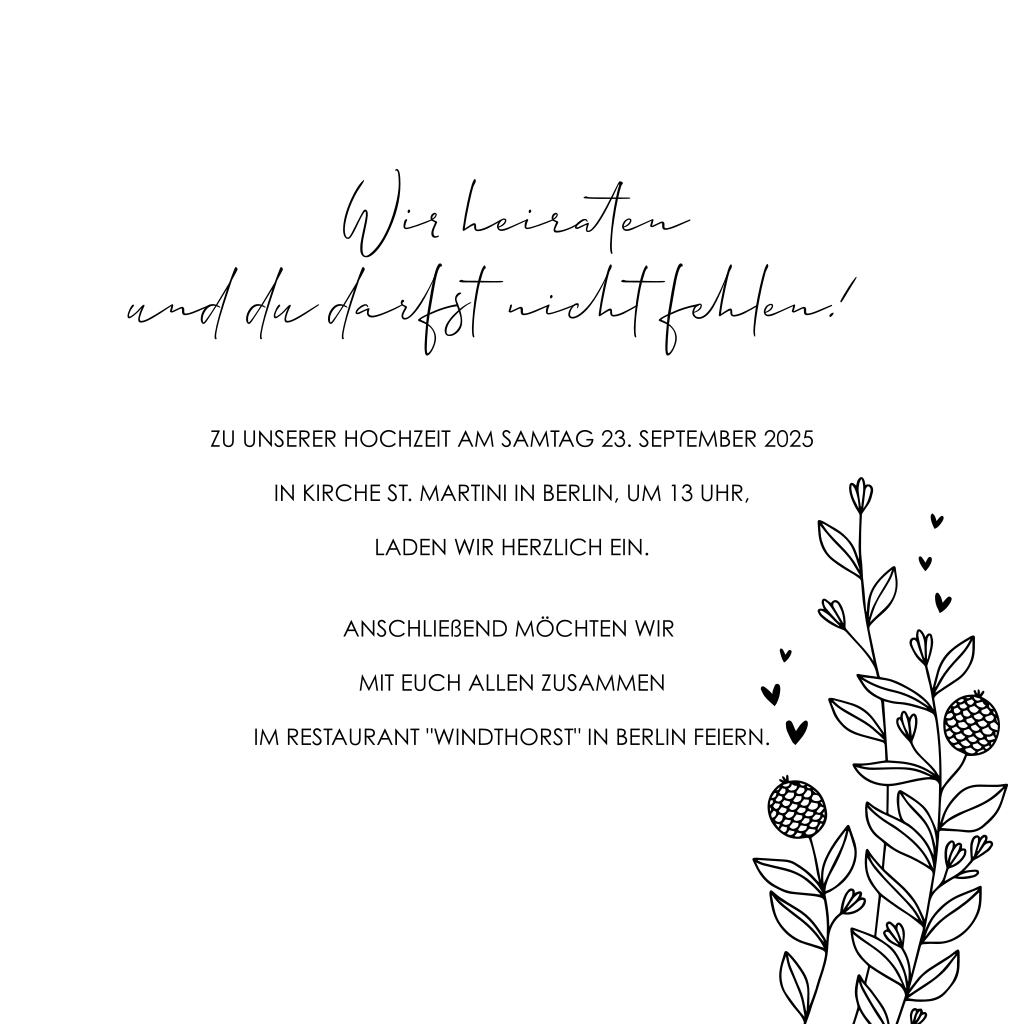 Wir heiraten
und du darfst nicht fehlen!
ZU UNSERER HOCHZEIT AM SAMTAG 23. SEPTEMBER 2025
IN KIRCHE ST. MARTINI IN BERLIN, UM 13 UHR,
LADEN WIR HERZLICH EIN.
ANSCHLIEßEND MÖCHTEN WIR
MIT EUCH ALLEN ZUSAMMEN
IM RESTAURANT "WINDTHORST" IN BERLIN FEIERN.